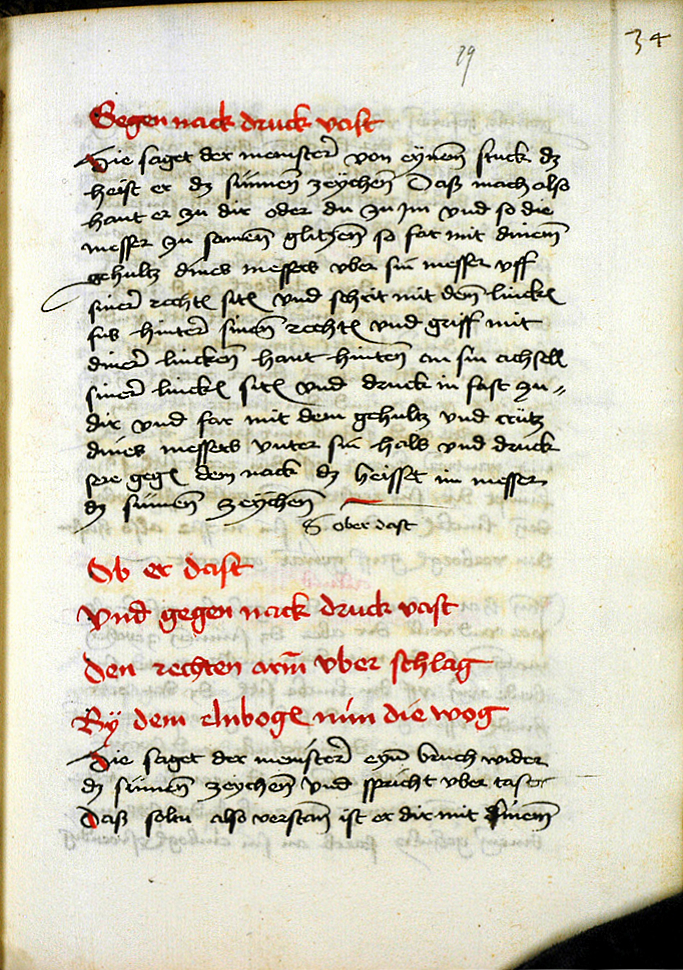 34
29
Gegen nack druck vast
Hie saget der meinsterꝰ von eynem stuck dz
heist er dz sunnen zeychen Daß mach also
haut er zu dir oder du zu Im vnd so die
messer zu samen glitzen so far mit dinem
gehultz dines messers vber sin messer vff
siner rechtē sitē vnd schrit mit dem linckē
fus hinter sinen rechtē vnd griff mit
diner lincken hant hinten an sin achsell
siner linckē sitē vnd druck in fast zu
dir vnd far mit dem gehultz vnd crütz
dines messers vnter sin hals vnd druck
sere gegē dem nack dz heisset im messer
dz sunnen zeychen
ober dast
Ob er dast
Vnd gegen nack druck vast
Den rechten arm vber schlag
By dem elnbogē nim die wog
Hie saget der meinster eyn bruch wider
dz sunnen zeychen vnd spricht vber taste
Daß soltu also verstan ist er dir mit sinem